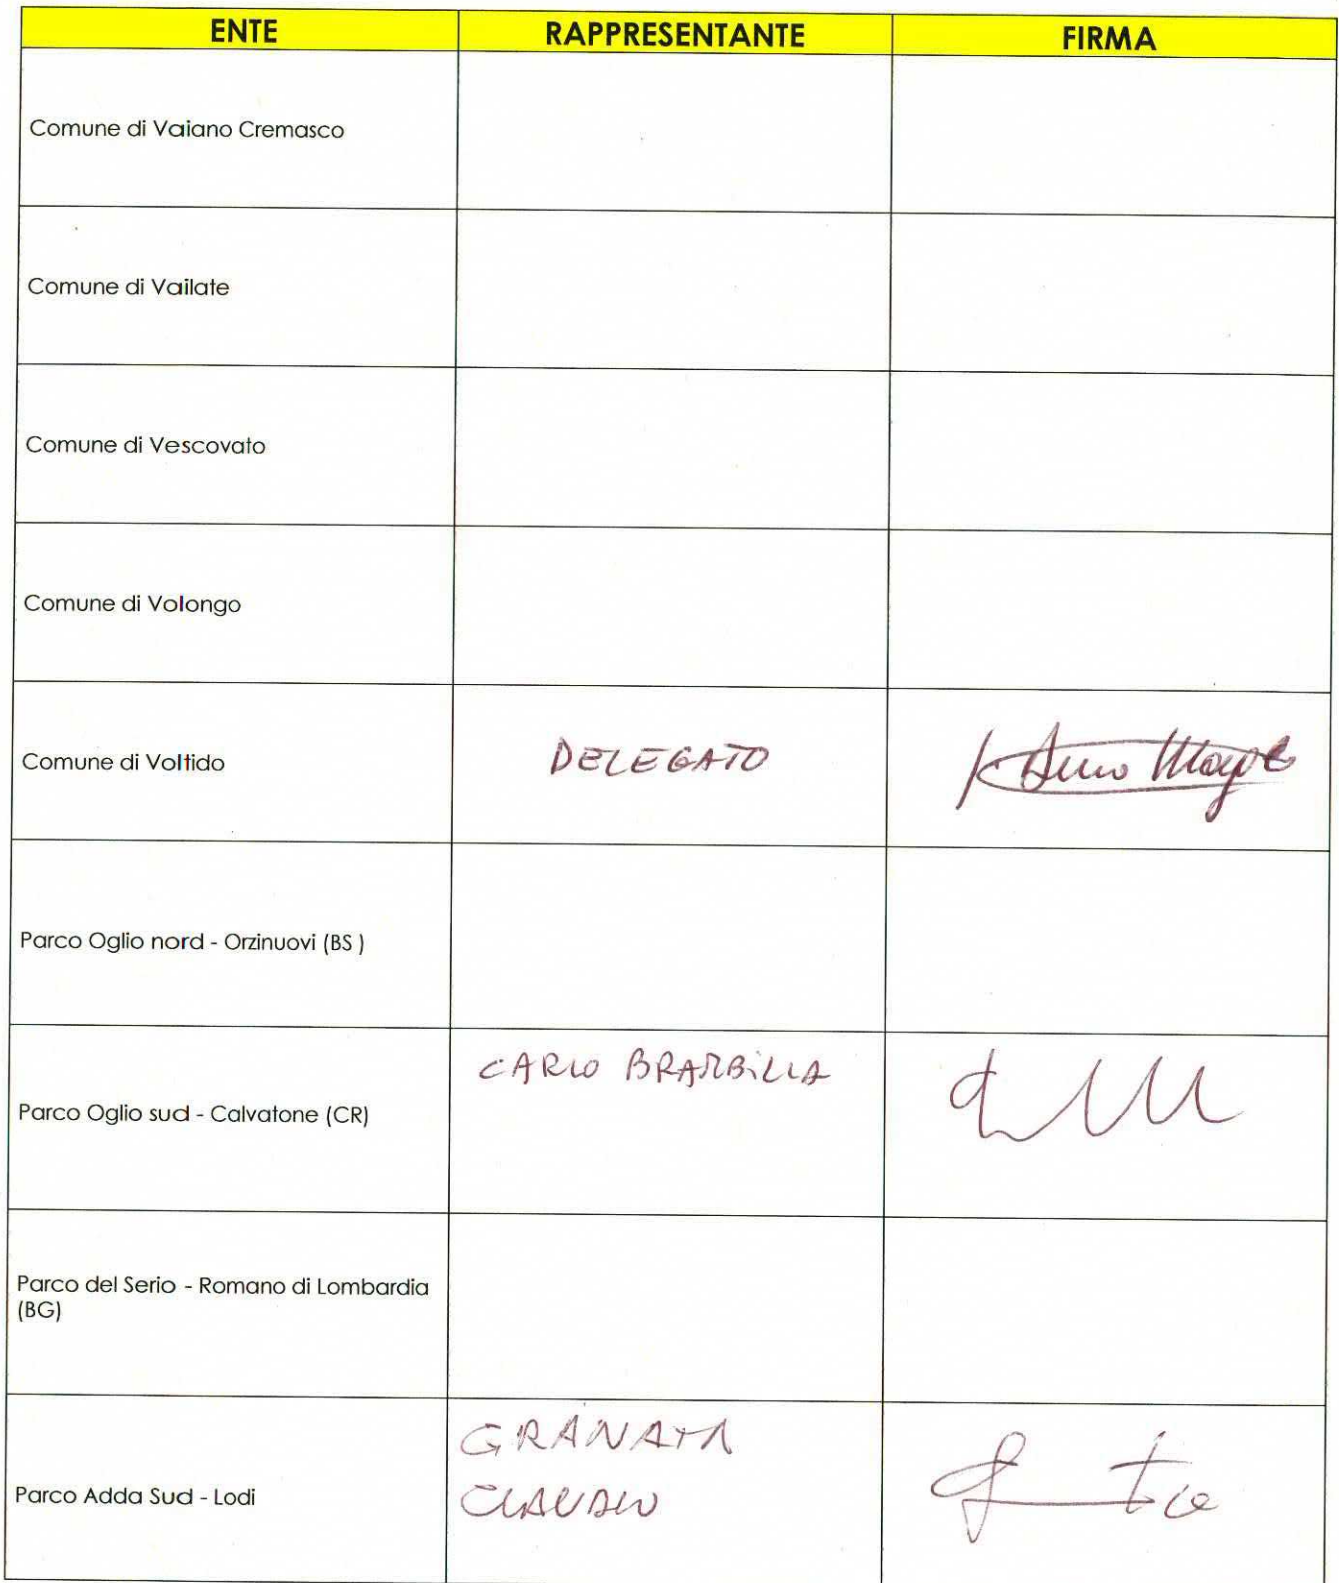 ENTE RAPPRESENTANTE FIRMA
Comune di Vaiano Cremasco
Comune di Vailate
Comune di Vescovato
Comune di Volongo
Comune di Voltido DELEGATO
Parco Oglio nord - Orzinuovi (BS )
CARLO BRAMBILLA
Parco Oglio sud - Calvatone (CR)
Parco del Serio - Romano di Lombardia
(BG)
GRANATA
Parco Adda Sud - Lodi CLAUDIO